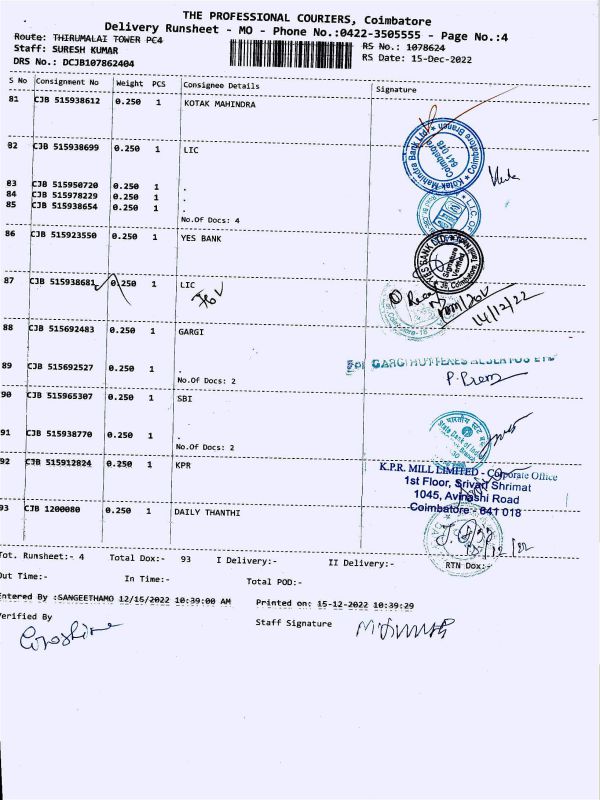 THE PROFESSIONAL COURIERS, Coimbatore
Delivery Runsheet - MO - Phone No.:0422-3505555 - Page No.:4
Route: THIRUMALAI TOWER PC4 RS No.: 1078624
Staff: SURESH KUMAR RS Date: 15-Dec-2022
DRS No.: DCJB107862404
S No Consignment No Weight PCS Consignee Details Signature
81 CJB 515938612 0.250 1 KOTAK MAHINDRA
Kotak Mahindra Bank Ltd * Coimbatore Branch *
Coimbatore
641 018
82 CJB 515938699 0.250 1 LIC
83 CJB 515950720 0.250 1 .
84 CJB 515978229 0.250 1 .
85 CJB 515938654 0.250 1 .
No.Of Docs: 4
86 CJB 515923550 0.250 1 YES BANK
YES BANK LTD.
Signature
Verified
87 CJB 515938681 0.250 1 LIC
14/12/22
88 CJB 515692483 0.250 1 GARGI
For GARGI HUTTENES ALBERTUS LTD
P. Prem
89 CJB 515692527 0.250 1 .
No.Of Docs: 2
90 CJB 515965307 0.250 1 SBI
भारतीय स्टेट बैंक
State Bank of India
91 CJB 515938770 0.250 1 .
No.Of Docs: 2
92 CJB 515912824 0.250 1 KPR
K.P.R. MILL LIMITED - Corporate Office
1st Floor, Srivari Shrimat
1045, Avinashi Road
Coimbatore - 641 018
93 CJB 1200080 0.250 1 DAILY THANTHI
Tot. Runsheet:- 4 Total Dox:- 93 I Delivery:- II Delivery:- RTN Dox:-
Out Time:- In Time:- Total POD:-
Entered By :SANGEETHAMO 12/15/2022 10:39:00 AM Printed on: 15-12-2022 10:39:29
Verified By Staff Signature